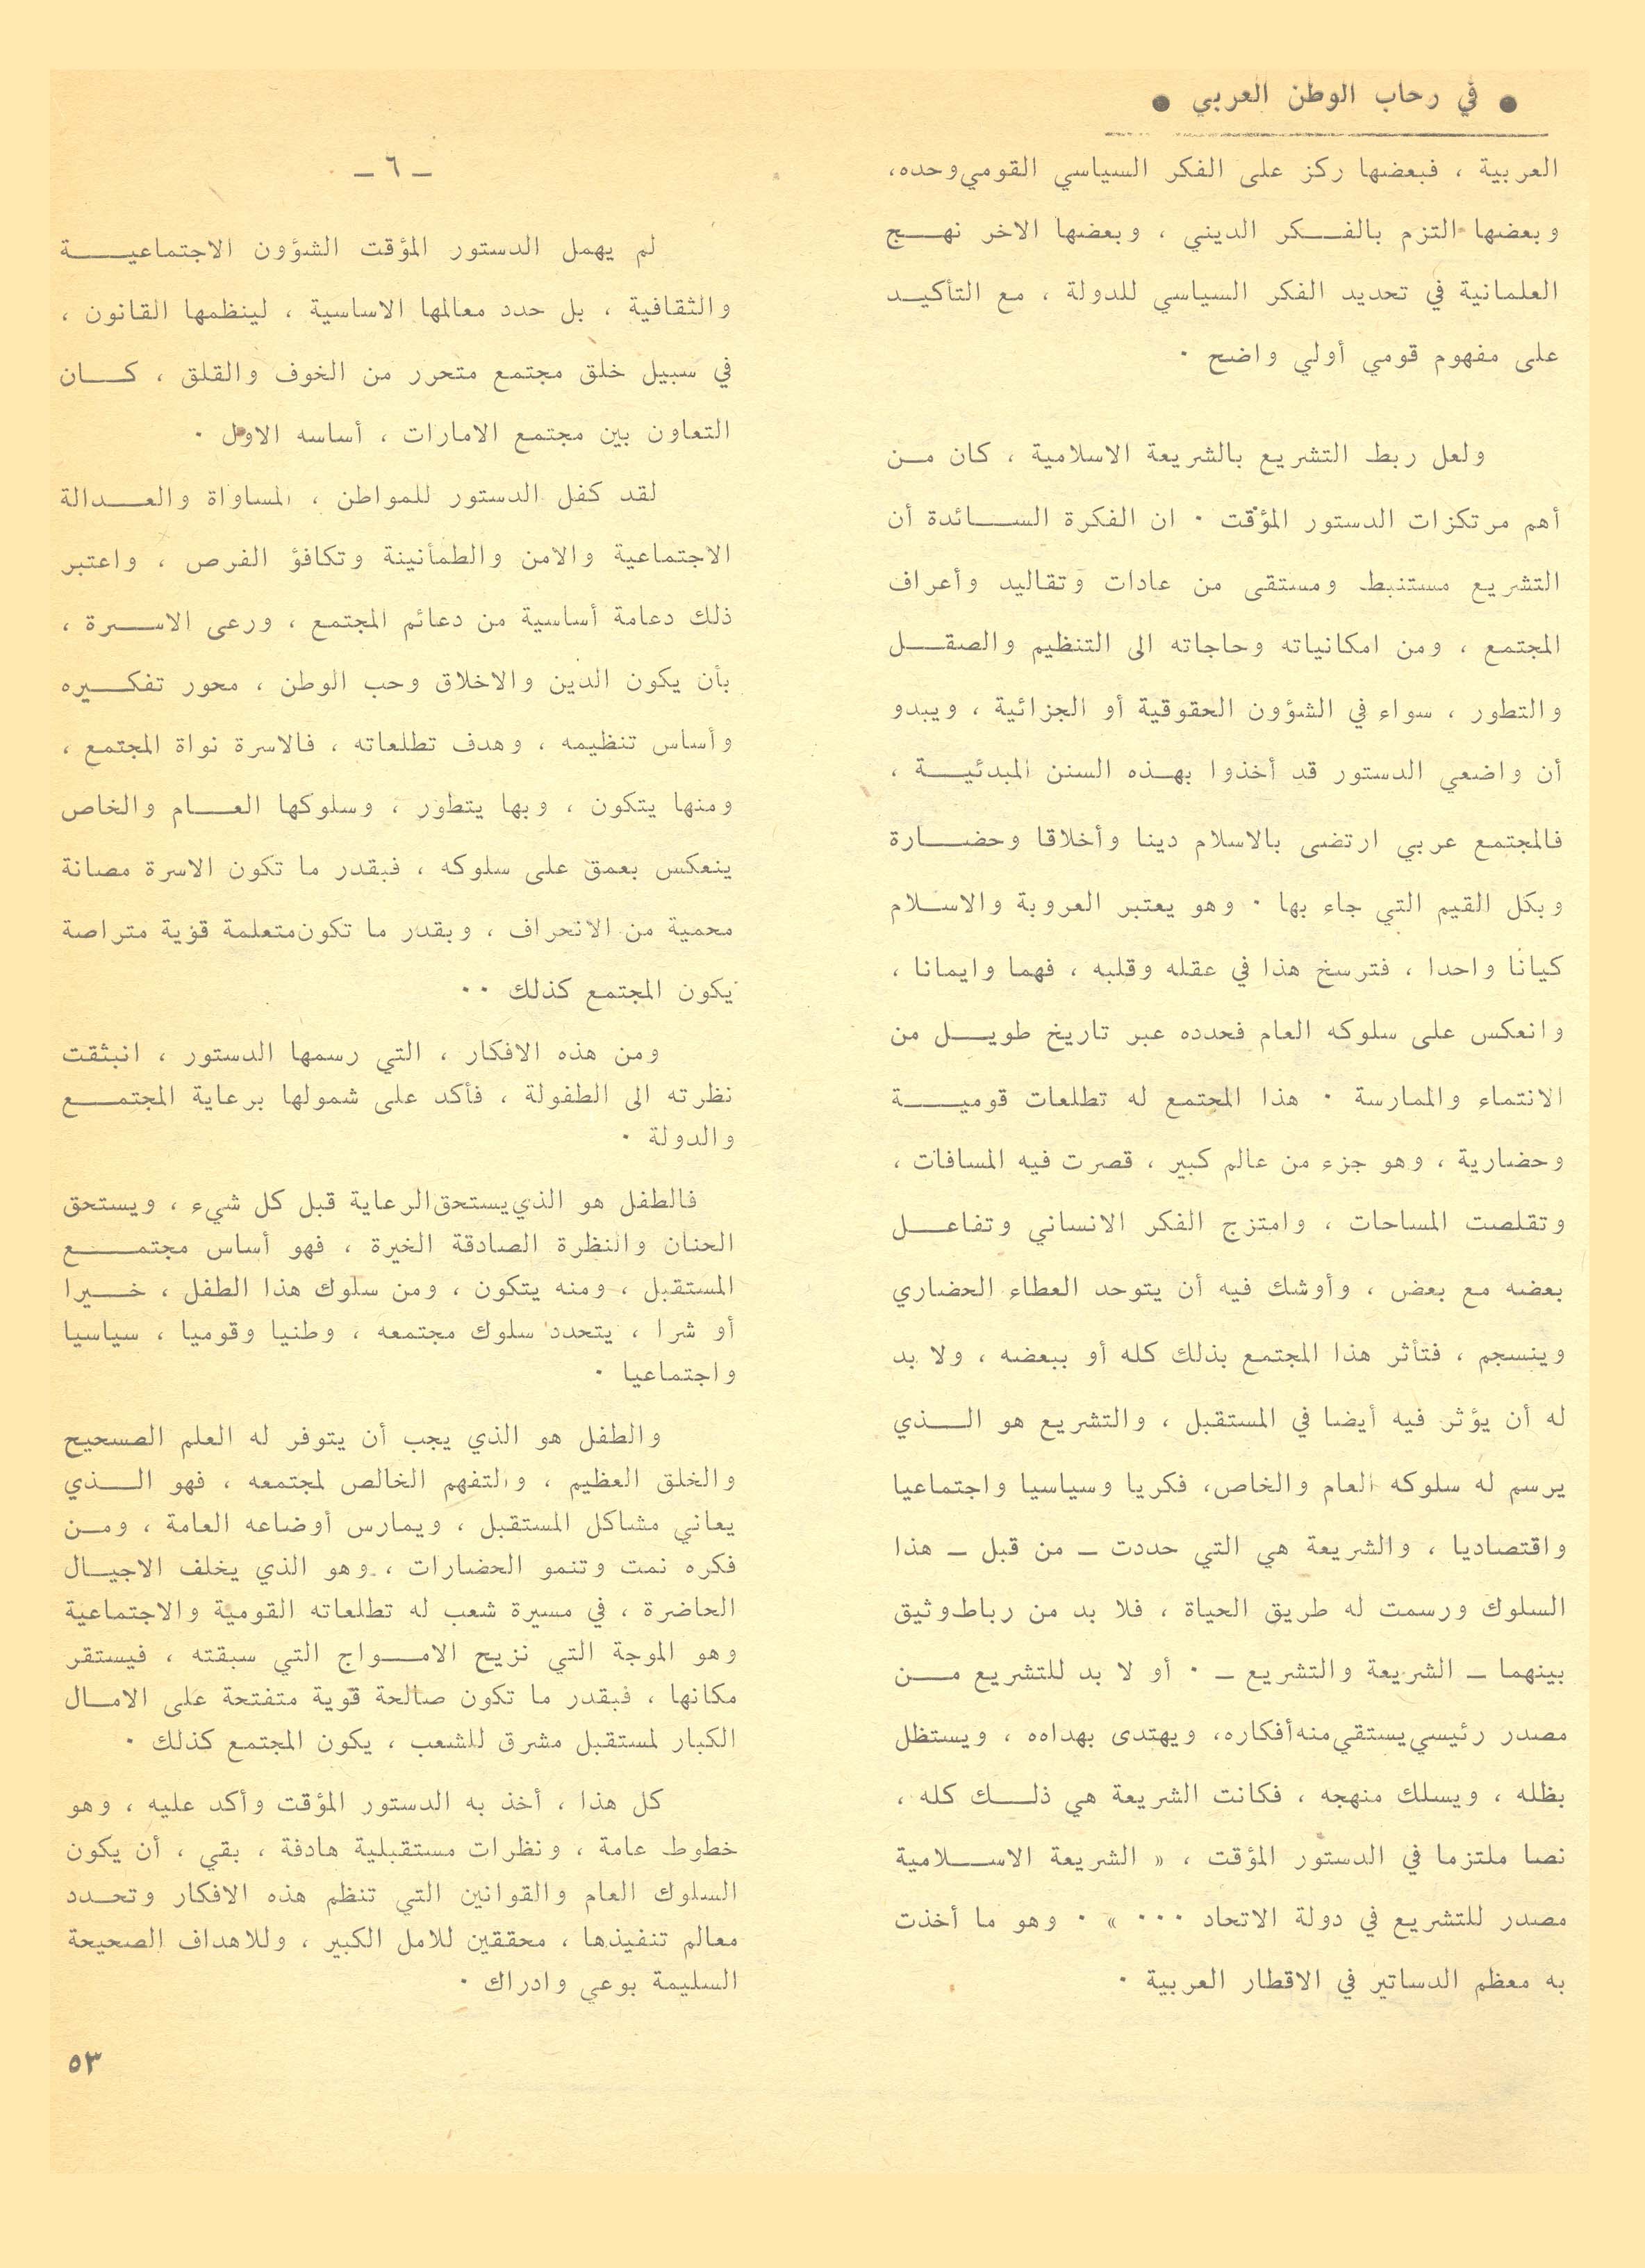 ● في رحاب الوطن العربي ●
العربية ، فبعضها ركز على الفكر السياسي القومي وحده،
وبعضها التزم بالفكر الديني ، وبعضها الاخر نهج
العلمانية في تحديد الفكر السياسي للدولة ، مع التأكيد
على مفهوم قومي أولي واضح ٠
ولعل ربط التشريع بالشريعة الاسلامية ، كان من
أهم مرتكزات الدستور المؤقت ٠ ان الفكرة السائدة أن
التشريع مستنبط ومستقى من عادات وتقاليد وأعراف
المجتمع ، ومن امكانياته وحاجاته الى التنظيم والصقل
والتطور ، سواء في الشؤون الحقوقية أو الجزائية ، ويبدو
أن واضعي الدستور قد أخذوا بهذه السنن المبدئية ،
فالمجتمع عربي ارتضى بالاسلام دينا وأخلاقا وحضارة
وبكل القيم التي جاء بها ٠ وهو يعتبر العروبة والاسلام
كيانا واحدا ، فترسخ هذا في عقله وقلبه ، فهما وايمانا ،
وانعكس على سلوكه العام فحدده عبر تاريخ طويل من
الانتماء والممارسة ٠ هذا المجتمع له تطلعات قومية
وحضارية ، وهو جزء من عالم كبير ، قصرت فيه المسافات ،
وتقلصت المساحات ، وامتزج الفكر الانساني وتفاعل
بعضه مع بعض ، وأوشك فيه أن يتوحد العطاء الحضاري
وينسجم ، فتأثر هذا المجتمع بذلك كله أو ببعضه ، ولا بد
له أن يؤثر فيه أيضا في المستقبل ، والتشريع هو الذي
يرسم له سلوكه العام والخاص، فكريا وسياسيا واجتماعيا
واقتصاديا ، والشريعة هي التي حددت ـ من قبل ـ هذا
السلوك ورسمت له طريق الحياة ، فلا بد من رباط وثيق
بينهما ـ الشريعة والتشريع ـ ٠ أو لا بد للتشريع من
مصدر رئيسي يستقي منه أفكاره، ويهتدى بهداه ، ويستظل
بظله ، ويسلك منهجه ، فكانت الشريعة هي ذلك كله ،
نصا ملتزما في الدستور المؤقت ، « الشريعة الاسلامية
مصدر للتشريع في دولة الاتحاد ٠٠٠ » ٠ وهو ما أخذت
به معظم الدساتير في الاقطار العربية ٠
ـ ٦ ـ
لم يهمل الدستور المؤقت الشؤون الاجتماعية
والثقافية ، بل حدد معالمها الاساسية ، لينظمها القانون ،
في سبيل خلق مجتمع متحرر من الخوف والقلق ، كان
التعاون بين مجتمع الامارات ، أساسه الاول ٠
لقد كفل الدستور للمواطن ، المساواة والعدالة
الاجتماعية والأمن والطمأنينة وتكافؤ الفرص ، واعتبر
ذلك دعامة أساسية من دعائم المجتمع ، ورعى الاسرة ،
بأن يكون الدين والاخلاق وحب الوطن ، محور تفكيره
وأساس تنظيمه ، وهدف تطلعاته ، فالاسرة نواة المجتمع ،
ومنها يتكون ، وبها يتطور ، وسلوكها العام والخاص
ينعكس بعمق على سلوكه ، فبقدر ما تكون الاسرة مصانة
محمية من الانحراف ، وبقدر ما تكون متعلمة قوية متراصة
يكون المجتمع كذلك ٠٠
ومن هذه الافكار ، التي رسمها الدستور ، انبثقت
نظرته الى الطفولة ، فأكد على شمولها برعاية المجتمع
والدولة ٠
فالطفل هو الذي يستحق الرعاية قبل كل شيء ، ويستحق
الحنان والنظرة الصادقة الخيرة ، فهو أساس مجتمع
المستقبل ، ومنه يتكون ، ومن سلوك هذا الطفل ، خيرا
أو شرا ، يتحدد سلوك مجتمعه ، وطنيا وقوميا ، سياسيا
واجتماعيا ٠
والطفل هو الذي يجب أن يتوفر له العلم الصحيح
والخلق العظيم ، والتفهم الخالص لمجتمعه ، فهو الذي
يعاني مشاكل المستقبل ، ويمارس أوضاعه العامة ، ومن
فكره نمت وتنمو الحضارات ، وهو الذي يخلف الاجيال
الحاضرة ، في مسيرة شعب له تطلعاته القومية والاجتماعية
وهو الموجة التي تزيح الامواج التي سبقته ، فيستقر
مكانها ، فبقدر ما تكون صالحة قوية متفتحة على الامال
الكبار لمستقبل مشرق للشعب ، يكون المجتمع كذلك ٠
كل هذا ، أخذ به الدستور المؤقت وأكد عليه ، وهو
خطوط عامة ، ونظرات مستقبلية هادفة ، بقي ، أن يكون
السلوك العام والقوانين التي تنظم هذه الافكار وتحدد
معالم تنفيذها ، محققين للامل الكبير ، وللاهداف الصحيحة
السليمة بوعي وادراك ٠
٥٣